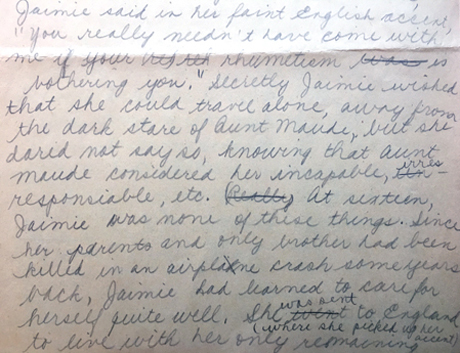 Jaimie said in her faint English accent
"You really needn't have come with
me if your rhumetism was is
bothering you." Secretly Jaimie wished
that she could travel alone, away from
the dark stare of Aunt Maude, but she
dared not say so, knowing that Aunt
maude considered her incapable, irres-
responsiable, etc. Really At sixteen,
Jaimie was none of these things. Since
her parents and only brother had been
killed in an airplane crash some years
back, Jaimie had learned to care for
herself quite well. She went was sent to England
(where she picked up her accent)
to live with her only remaining